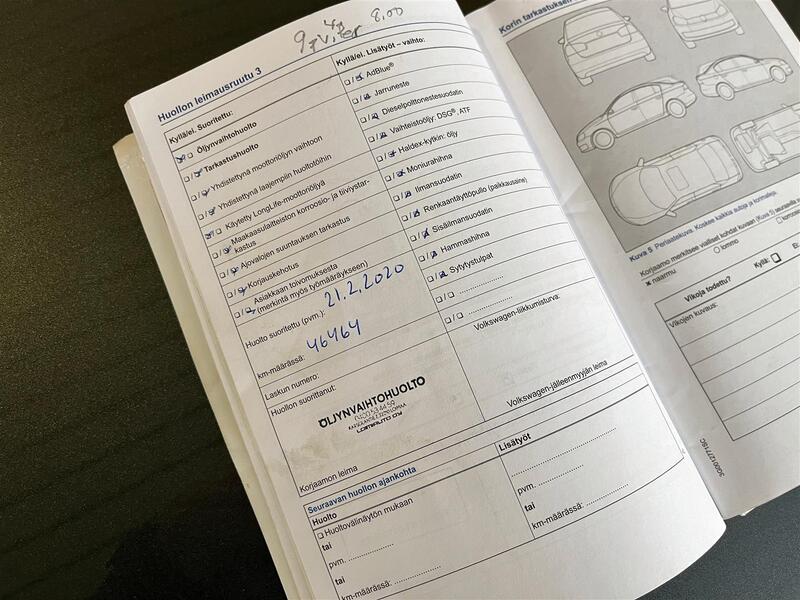 8,00
Huollon leimausruutu 3
Kyllä/ei. Suoritettu:
☒/☐ Öljynvaihtohuolto
☐/☒ Tarkastushuolto
☐/☒ Yhdistettynä moottoriöljyn vaihtoon
☐/☒ Yhdistettynä laajempiin huoltotöihin
☒/☐ Käytetty LongLife-moottoriöljyä
☐/☒ Maakaasulaitteiston korroosio- ja tiiviystar-
kastus
☐/☒ Ajovalojen suuntauksen tarkastus
☐/☒ Korjauskehotus
☐/☒ Asiakkaan toivomuksesta
(merkintä myös työmääräykseen)
Huolto suoritettu (pvm.): 21.2.2020
km-määrässä: 46464
Laskun numero:
Huollon suorittanut:
ÖLJYNVAIHTOHUOLTO
Korjaamon leima
Kyllä/ei. Lisätyöt – vaihto:
☐/☒ AdBlue®
☐/☒ Jarruneste
☐/☒ Dieselpolttonestesuodatin
☐/☒ Vaihteistoöljy: DSG®, ATF
☐/☒ Haldex-kytkin: öljy
☐/☒ Moniurahihna
☐/☒ Ilmansuodatin
☐/☒ Renkaantäyttöpullo (paikkausaine)
☐/☒ Sisäilmansuodatin
☐/☒ Hammashihna
☐/☒ Sytytystulpat
☐/☐ ....................
☐/☐ ....................
Volkswagen-liikkumisturva:
Volkswagen-jälleenmyyjän leima
Seuraavan huollon ajankohta
Huolto
☐ Huoltovälinäytön mukaan
tai
pvm. ....................
tai
km-määrässä: ....................
Lisätyöt
pvm. ....................
tai
km-määrässä: ....................
Korin tarkastuksen
Kuva 5 Periaatekuva. Koskee kaikkia autoja ja korimalleja.
Korjaamo merkitsee vialliset kohdat kuvaan (Kuva 5)
× naarmu
○ lommo
Vikoja todettu?
Kyllä: ☐
Vikojen kuvaus:
3G0012771SC